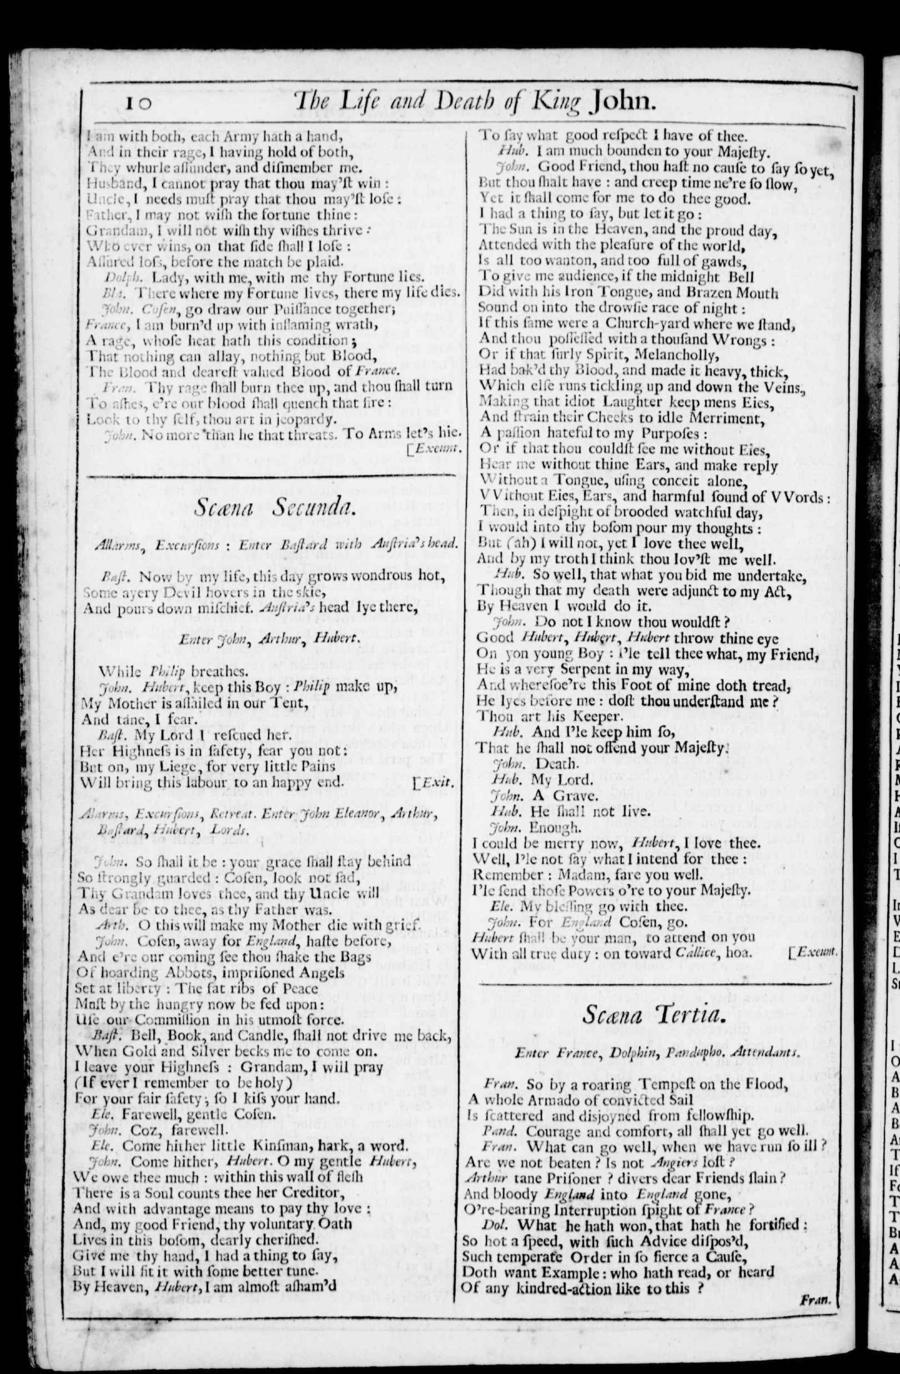 10 The Life and Death of King John.
I am with both, each Army hath a hand,
And in their rage, I having hold of both,
They whurle aſſunder, and diſmember me.
Husband, I cannot pray that thou may'ſt win :
Uncle, I needs muſt pray that thou may'ſt loſe :
Father, I may not wiſh the fortune thine :
Grandam, I will not wiſh thy wiſhes thrive :
Who ever wins, on that ſide ſhall I loſe :
Aſſured loſs, before the match be plaid.
Dolph. Lady, with me, with me thy Fortune lies.
Bla. There where my Fortune lives, there my life dies.
John. Coſen, go draw our Puiſſance together;
France, I am burn'd up with inflaming wrath,
A rage, whoſe heat hath this condition;
That nothing can allay, nothing but Blood,
The Blood and deareſt valued Blood of France.
Fran. Thy rage ſhall burn thee up, and thou ſhall turn
To aſhes, e're our blood ſhall quench that fire :
Look to thy ſelf, thou art in jeopardy.
John. No more than he that threats. To Arms let's hie.
[Exeunt.
Scæna Secunda.
Allarms, Excurſions : Enter Baſtard with Auſtria's head.
Baſt. Now by my life, this day grows wondrous hot,
Some ayery Devil hovers in the skie,
And pours down miſchief. Auſtria's head lye there,
Enter John, Arthur, Hubert.
While Philip breathes.
John. Hubert, keep this Boy : Philip make up,
My Mother is aſſailed in our Tent,
And tane, I fear.
Baſt. My Lord I reſcued her.
Her Highneſs is in ſafety, fear you not :
But on, my Liege, for very little Pains
Will bring this labour to an happy end. [Exit.
Alarms, Excurſions, Retreat. Enter John Eleanor, Arthur,
Baſtard, Hubert, Lords.
John. So ſhall it be : your grace ſhall ſtay behind
So ſtrongly guarded : Coſen, look not ſad,
Thy Grandam loves thee, and thy Uncle will
As dear be to thee, as thy Father was.
Arth. O this will make my Mother die with grief.
John. Coſen, away for England, haſte before,
And e're our coming ſee thou ſhake the Bags
Of hoarding Abbots, impriſoned Angels
Set at liberty : The fat ribs of Peace
Muſt by the hungry now be fed upon :
Uſe our Commiſſion in his utmoſt force.
Baſt. Bell, Book, and Candle, ſhall not drive me back,
When Gold and Silver becks me to come on.
I leave your Highneſs : Grandam, I will pray
(If ever I remember to be holy)
For your fair ſafety; ſo I kiſs your hand.
Ele. Farewell, gentle Coſen.
John. Coz, farewell.
Ele. Come hither little Kinſman, hark, a word.
John. Come hither, Hubert. O my gentle Hubert,
We owe thee much : within this wall of fleſh
There is a Soul counts thee her Creditor,
And with advantage means to pay thy love :
And, my good Friend, thy voluntary Oath
Lives in this boſom, dearly cheriſhed.
Give me thy hand, I had a thing to ſay,
But I will fit it with ſome better tune.
By Heaven, Hubert, I am almoſt aſham'd
To ſay what good reſpect I have of thee.
Hub. I am much bounden to your Majeſty.
John. Good Friend, thou haſt no cauſe to ſay ſo yet,
But thou ſhalt have : and creep time ne're ſo ſlow,
Yet it ſhall come for me to do thee good.
I had a thing to ſay, but let it go :
The Sun is in the Heaven, and the proud day,
Attended with the pleaſure of the world,
Is all too wanton, and too full of gawds,
To give me audience, if the midnight Bell
Did with his Iron Tongue, and Brazen Mouth
Sound on into the drowſie race of night :
If this ſame were a Church-yard where we ſtand,
And thou poſſeſſed with a thouſand Wrongs :
Or if that ſurly Spirit, Melancholly,
Had bak'd thy Blood, and made it heavy, thick,
Which elſe runs tickling up and down the Veins,
Making that idiot Laughter keep mens Eies,
And ſtrain their Cheeks to idle Merriment,
A paſſion hateful to my Purpoſes :
Or if that thou couldſt ſee me without Eies,
Hear me without thine Ears, and make reply
Without a Tongue, uſing conceit alone,
VVithout Eies, Ears, and harmful ſound of VVords :
Then, in deſpight of brooded watchful day,
I would into thy boſom pour my thoughts :
But (ah) I will not, yet I love thee well,
And by my troth I think thou lov'ſt me well.
Hub. So well, that what you bid me undertake,
Though that my death were adjunct to my Act,
By Heaven I would do it.
John. Do not I know thou wouldſt ?
Good Hubert, Hubert, Hubert throw thine eye
On yon young Boy : I'le tell thee what, my Friend,
He is a very Serpent in my way,
And whereſoe're this Foot of mine doth tread,
He lyes before me : doſt thou underſtand me ?
Thou art his Keeper.
Hub. And I'le keep him ſo,
That he ſhall not offend your Majeſty.
John. Death.
Hub. My Lord.
John. A Grave.
Hub. He ſhall not live.
John. Enough.
I could be merry now, Hubert, I love thee.
Well, I'le not ſay what I intend for thee :
Remember : Madam, fare you well.
I'le ſend thoſe Powers o're to your Majeſty.
Ele. My bleſſing go with thee.
John. For England Coſen, go.
Hubert ſhall be your man, to attend on you
With all true duty : on toward Callice, hoa. [Exeunt.
Scæna Tertia.
Enter France, Dolphin, Pandupho. Attendants.
Fran. So by a roaring Tempeſt on the Flood,
A whole Armado of convicted Sail
Is ſcattered and disjoyned from fellowſhip.
Pand. Courage and comfort, all ſhall yet go well.
Fran. What can go well, when we have run ſo ill ?
Are we not beaten ? Is not Angiers loſt ?
Arthur tane Priſoner ? divers dear Friends ſlain ?
And bloody England into England gone,
O're-bearing Interruption ſpight of France ?
Dol. What he hath won, that hath he fortified :
So hot a ſpeed, with ſuch Advice diſpos'd,
Such temperate Order in ſo fierce a Cauſe,
Doth want Example : who hath read, or heard
Of any kindred-action like to this ?
Fran.